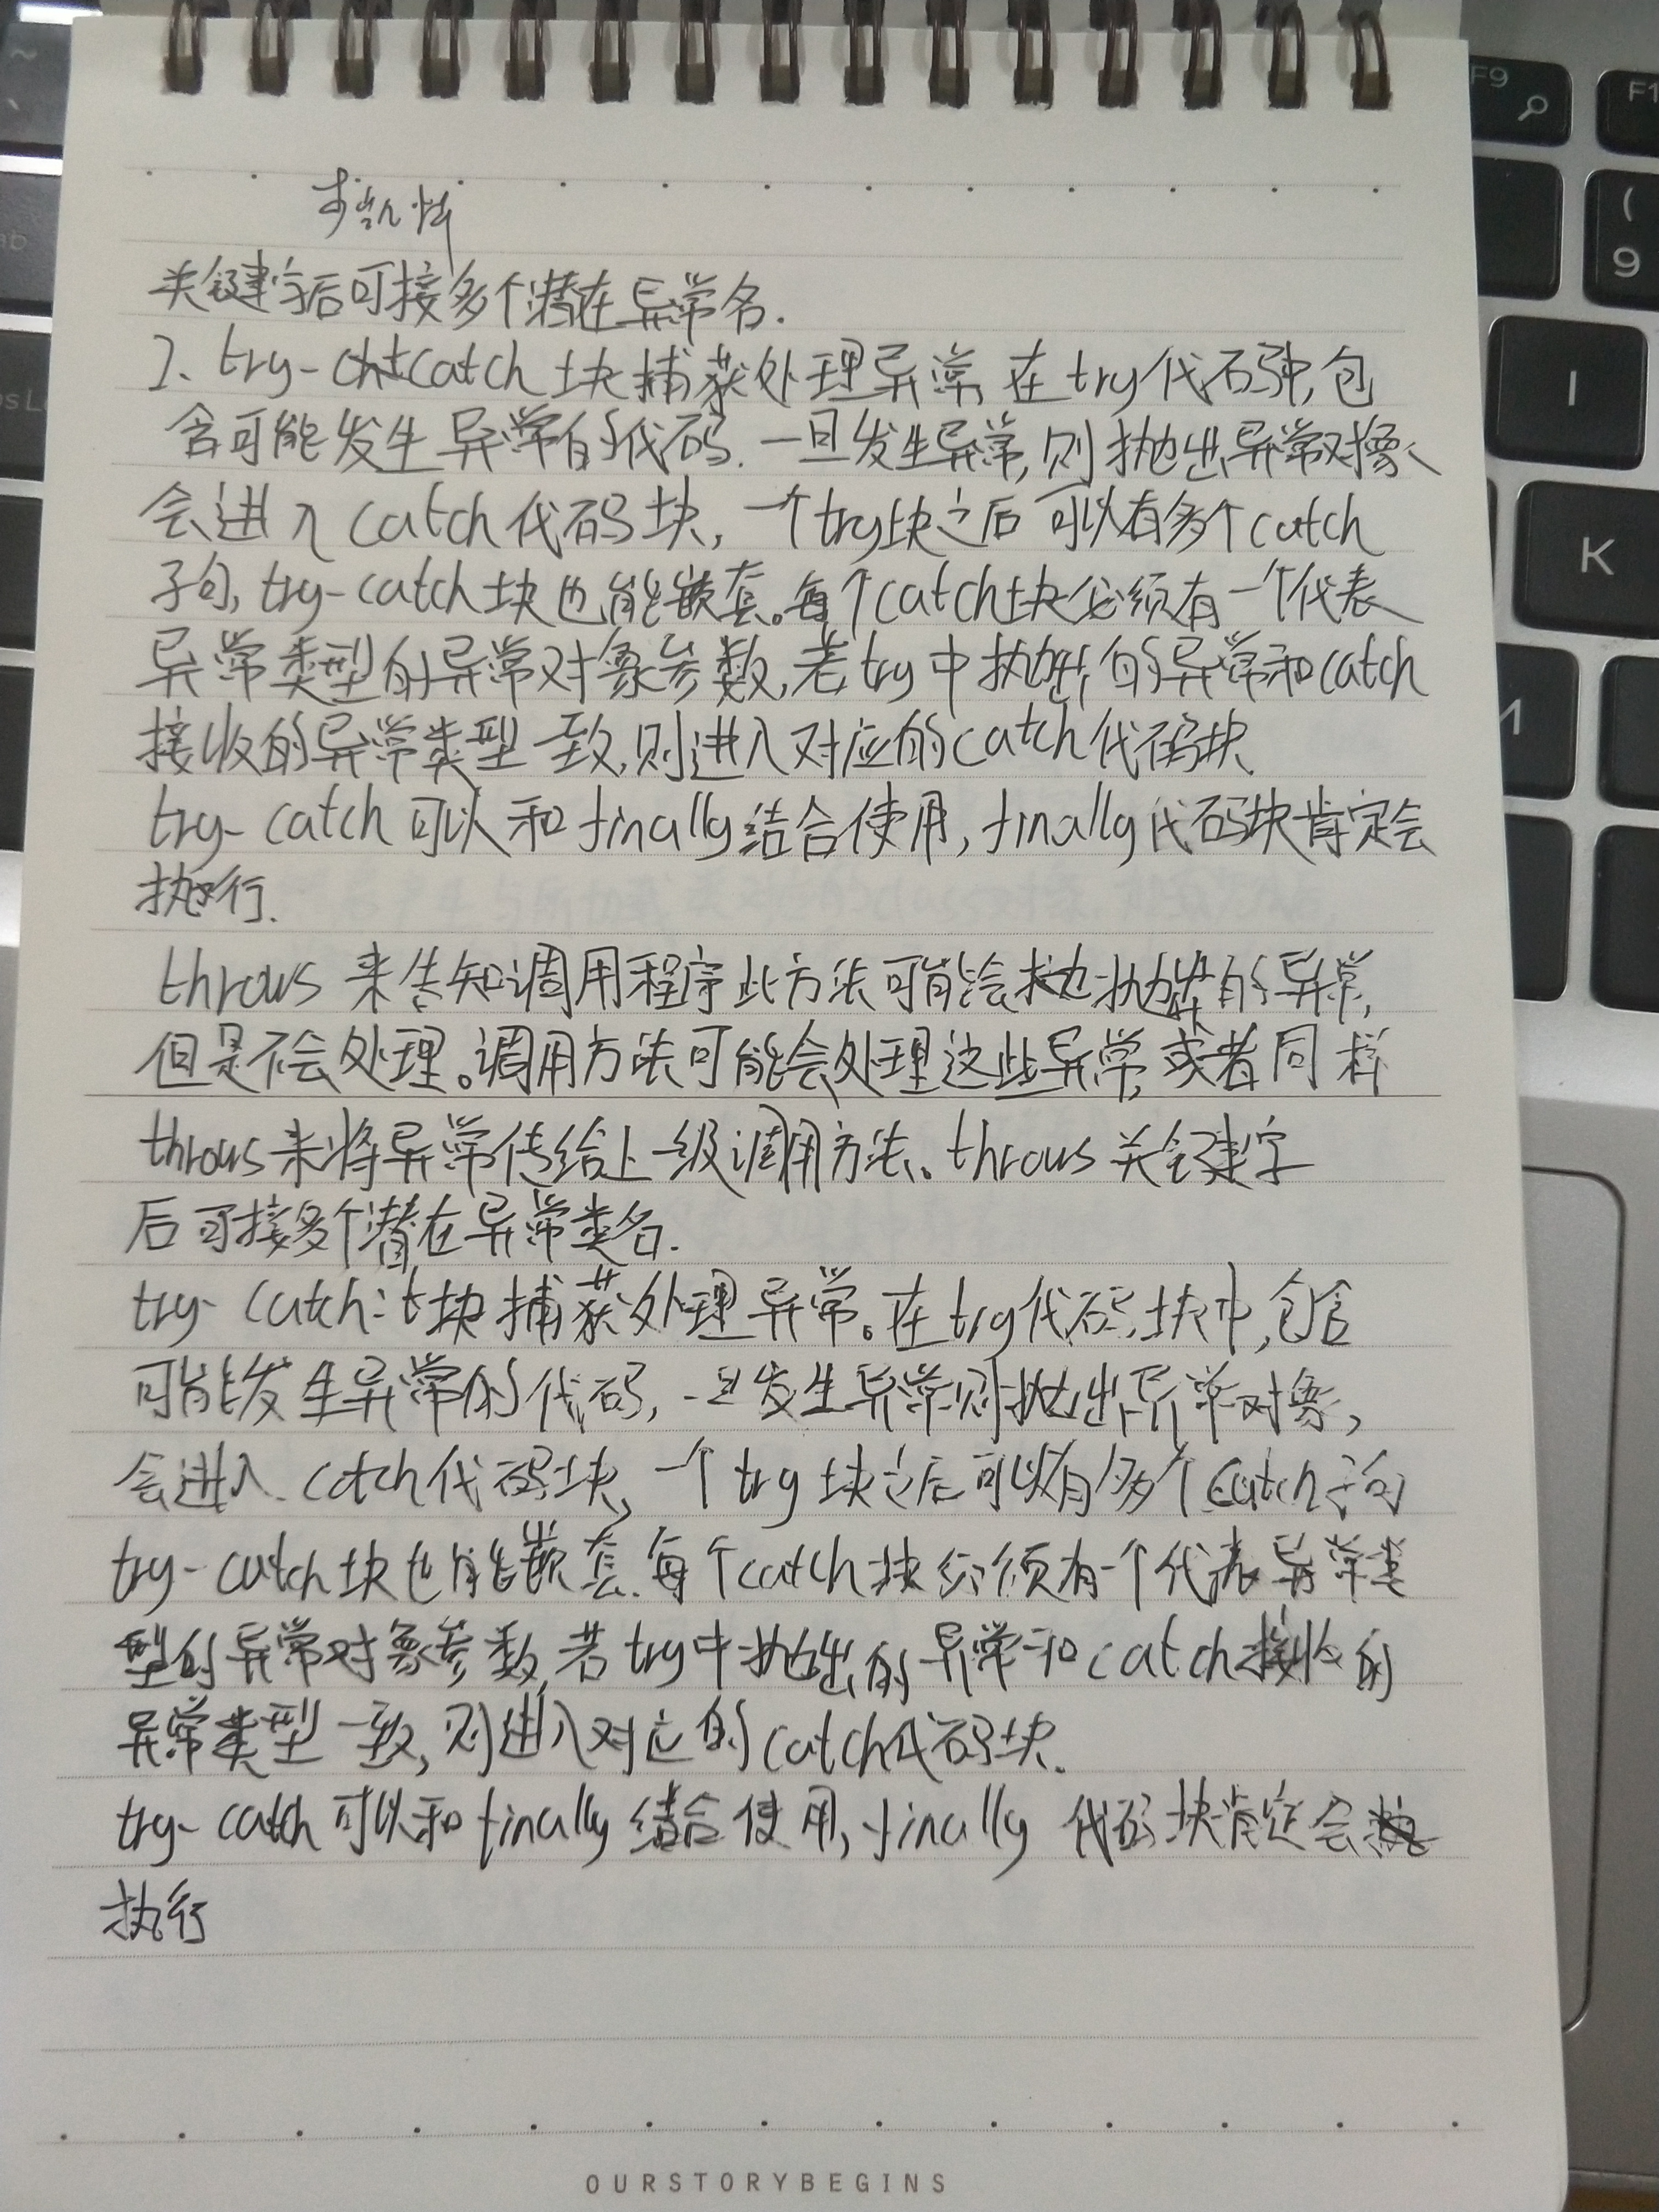 关键字后可接多个潜在异常名.
2、try-catch块捕获处理异常,在try代码块中,包
含可能发生异常的代码.一旦发生异常,则抛出异常对象、
会进入catch代码块,一个try块之后可以有多个catch
子句,try-catch块也能嵌套。每个catch块必须有一个代表
异常类型的异常对象参数,若try中抛出的异常和catch
接收的异常类型一致,则进入对应的catch代码块.
try-catch可以和finally结合使用,finally代码块肯定会
执行.
throws来告知调用程序此方法可能会抛出的异常,
但是不会处理。调用方法可能会处理这些异常,或者同样
throws来将异常传给上一级调用方法。throws关键字
后可接多个潜在异常类名.
try-catch:块捕获处理异常。在try代码块中,包含
可能发生异常的代码,一旦发生异常则抛出异常对象,
会进入catch代码块,一个try块之后可以有多个catch子句
try-catch块也能嵌套.每个catch块必须有一个代表异常类
型的异常对象参数,若try中抛出的异常和catch接收的
异常类型一致,则进入对应的catch代码块.
try-catch可以和finally结合使用,finally代码块肯定会
执行
OURSTORYBEGINS
~
F9
F1
(
9
I
K
M